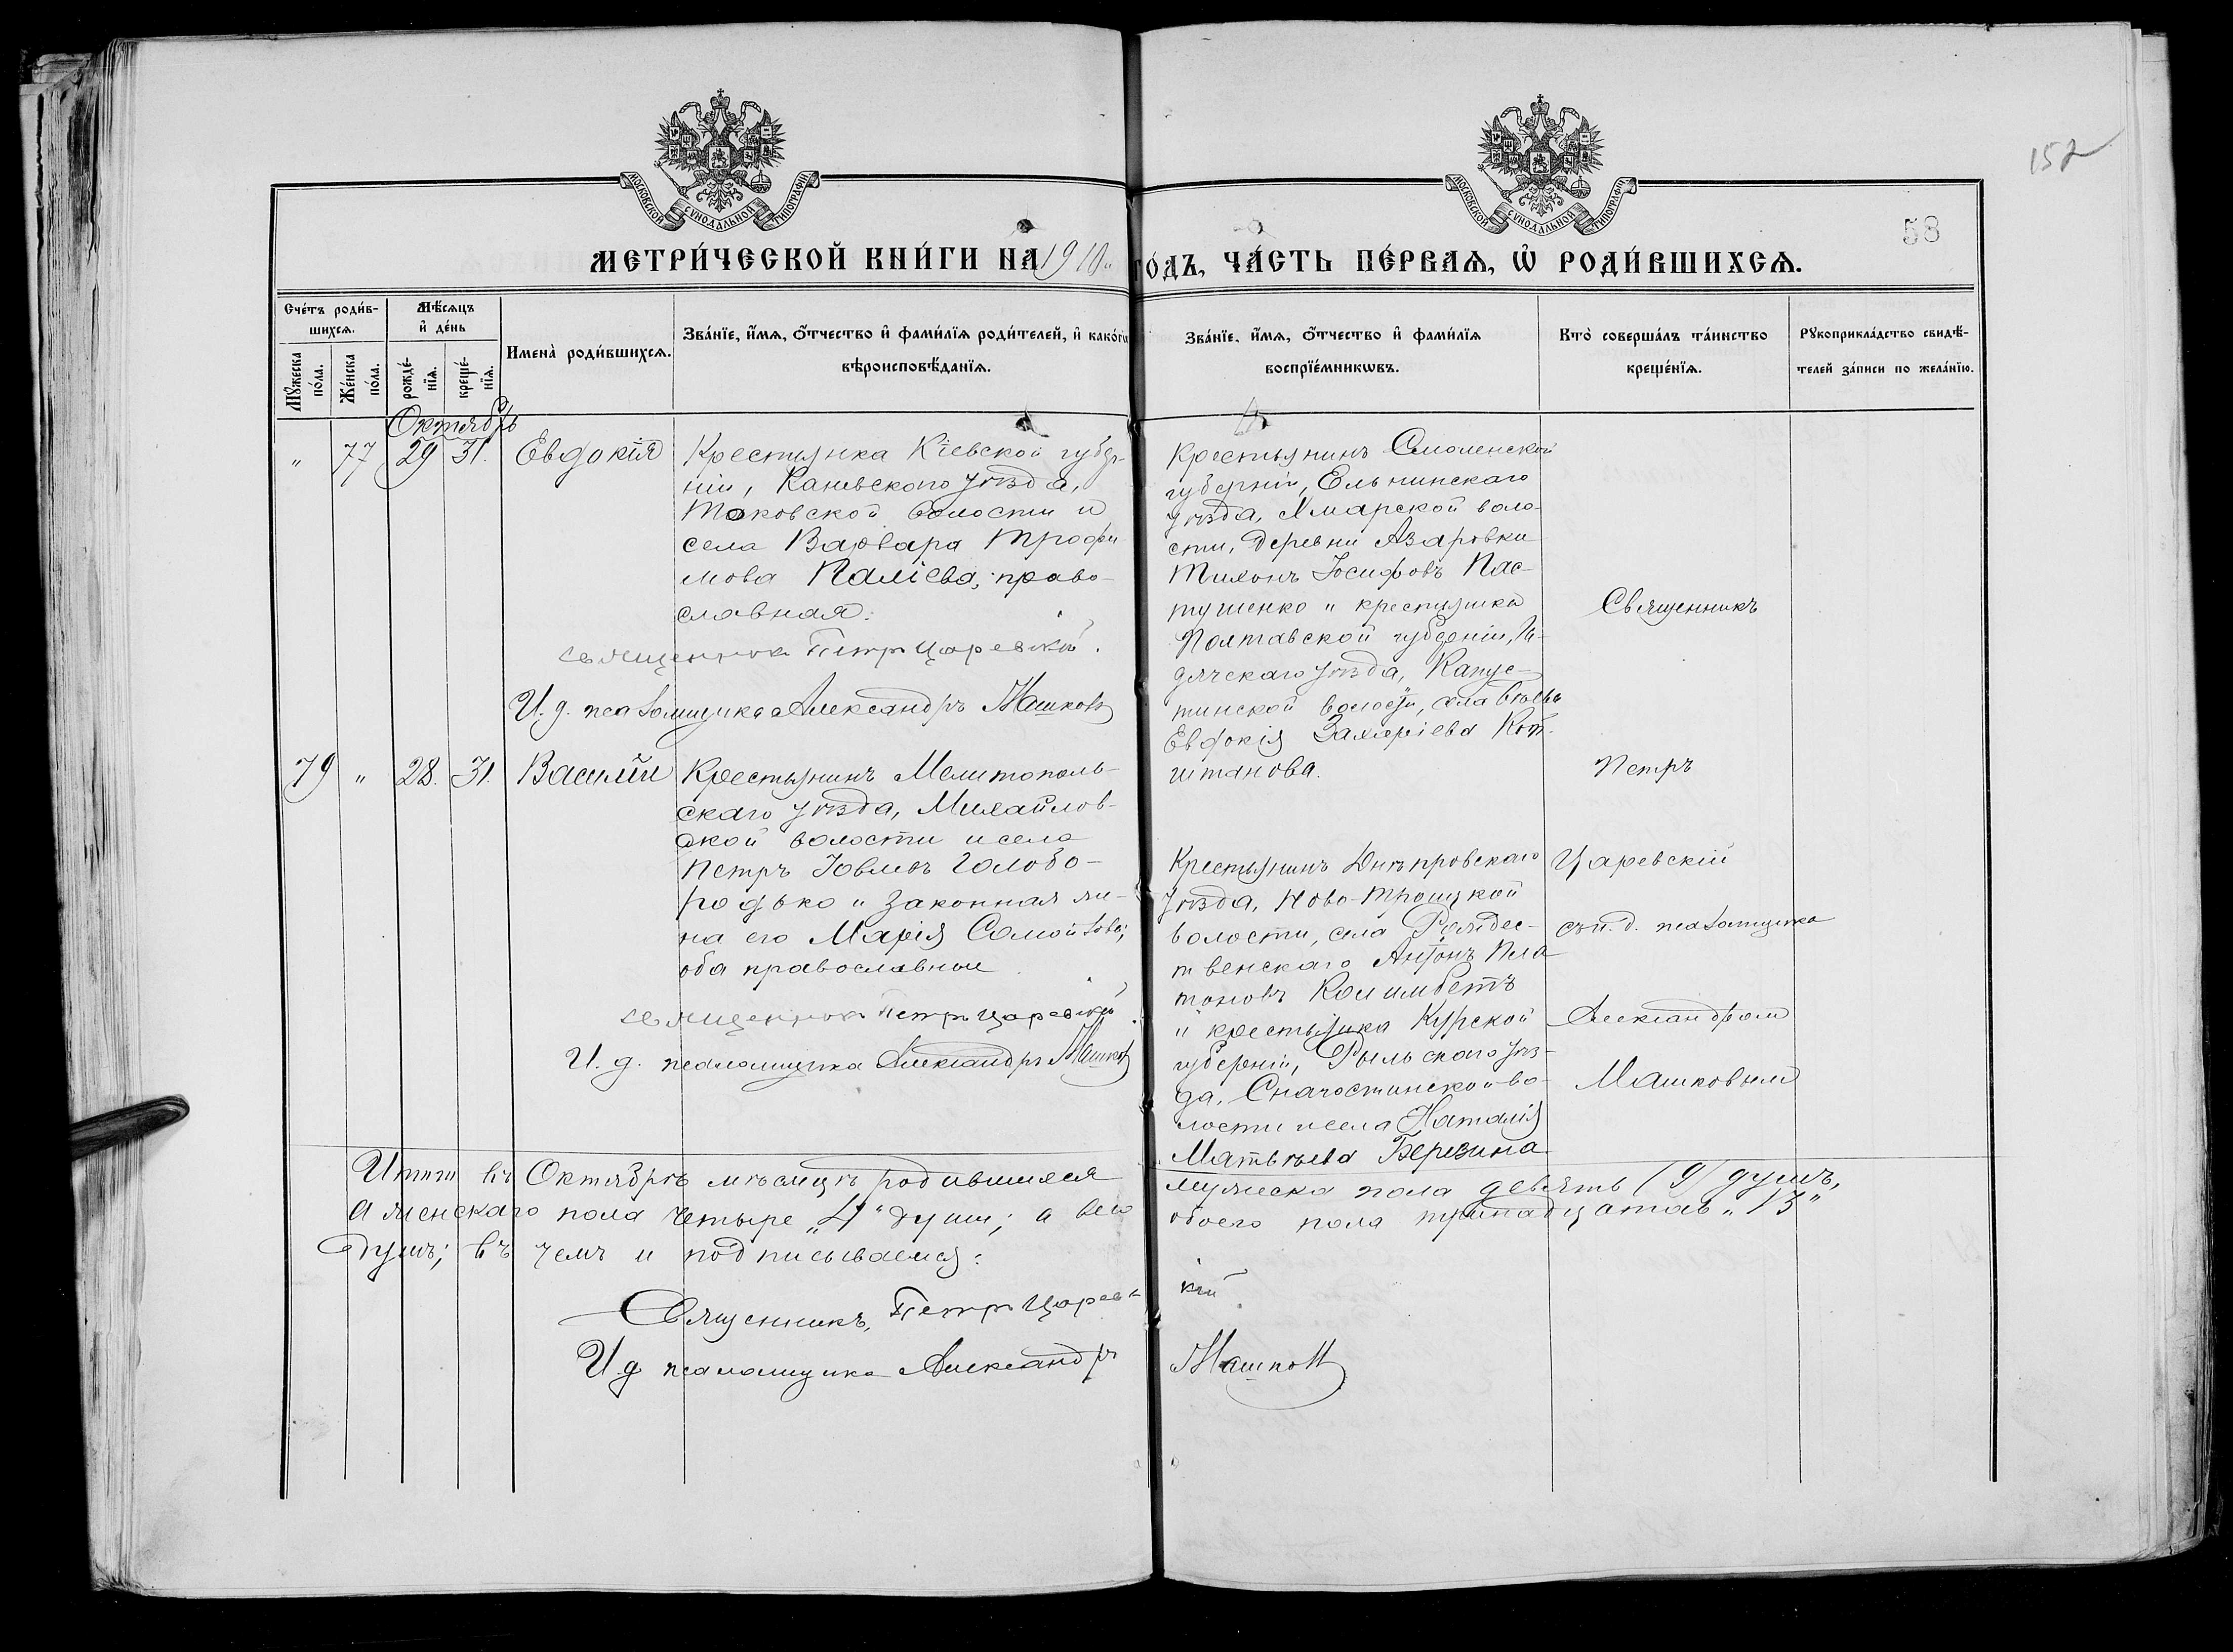 152
58
МОСКОВСКОЙ СѴНОДАЛЬНОЙ ТИПОГРАФІИ
МОСКОВСКОЙ СѴНОДАЛЬНОЙ ТИПОГРАФІИ
МЕТРИ́ЧЕСКОЙ КНИ́ГИ НА 1910 ГО́ДЪ, ЧА́СТЬ ПЕ́РВАѦ, Ѡ҆ РОДИ́ВШИХСѦ.
Счéтъ роди́в-
шихсѧ.
Мꙋ́жеска по́ла.
Же́нска по́ла.
Мѣ́сѧцъ
и҆ де́нь
рожде́-
нїѧ.
креще́-
нїѧ.
Имена̀ роди́вшихсѧ.
Зва́нїе, и҆́мѧ, ѻ҆́тчество и҆ фами́лїѧ роди́телей, и҆ како́гѡ
вѣроисповѣ́данїѧ.
Зва́нїе, и҆́мѧ, ѻ҆́тчество и҆ фами́лїѧ
воспрїе́мникѡвъ.
Кто̀ соверша́лъ та́инство
креще́нїѧ.
Рꙋкоприкла́дство свидѣ́-
телей за́писи по жела́нїю.
Октябрь
" 77 29 31. Евдокія
Крестьянка Кіевской губер-
ніи, Каневского уѣзда,
Таковской волости и
села Варвара Трофи
мова Паліева, право-
славная.
священник Петр Царевскій.
И. д. псаломщика Александръ Машковъ
Крестьянинъ Смоленской
губерніи, Ельнинскаго
уѣзда, Хмарской воло-
сти, деревни Азаровки
Тихонъ Іосифовъ Пас-
тушенко и крестьянка
Полтавской губерніи,
дячскаго уѣзда, Капус-
тинской волости, села
Евдокія Захаріева Кот-
штанова.
79 " 28. 31. Василій
Крестьянинъ Мелитополь-
скаго уѣзда, Михайлов-
ской волости и села
Петръ Іовлевъ Голобо-
родько и законная же-
на его Марія Самойлова;
оба православные
священник Петр Царевскій.
И. д. псаломщика Александръ Машковъ
Крестьянинъ Днѣпровскаго
уѣзда, Ново-Троицкой
волости, села Рождес-
твенскаго Антонъ Пла
тоновъ Колимбетъ
и крестьянка Курской
губерніи, Рыльскаго уѣз-
да, Снагостинской во-
лости и села Наталія
Матвѣева Березина.
Священникъ
Петръ
Царевскій
съ и. д. псаломщика
Александромъ
Машковымъ
Итого въ Октябрѣ мѣсяцѣ родившихся мужеска пола девять (9) душъ,
а женскаго пола четыре "4" души; а всего обоего пола тринадцать "13"
душъ; въ чемъ и подписываемся:
Священникъ, Петр Царевскій
И. д псаломщика Александръ Машков